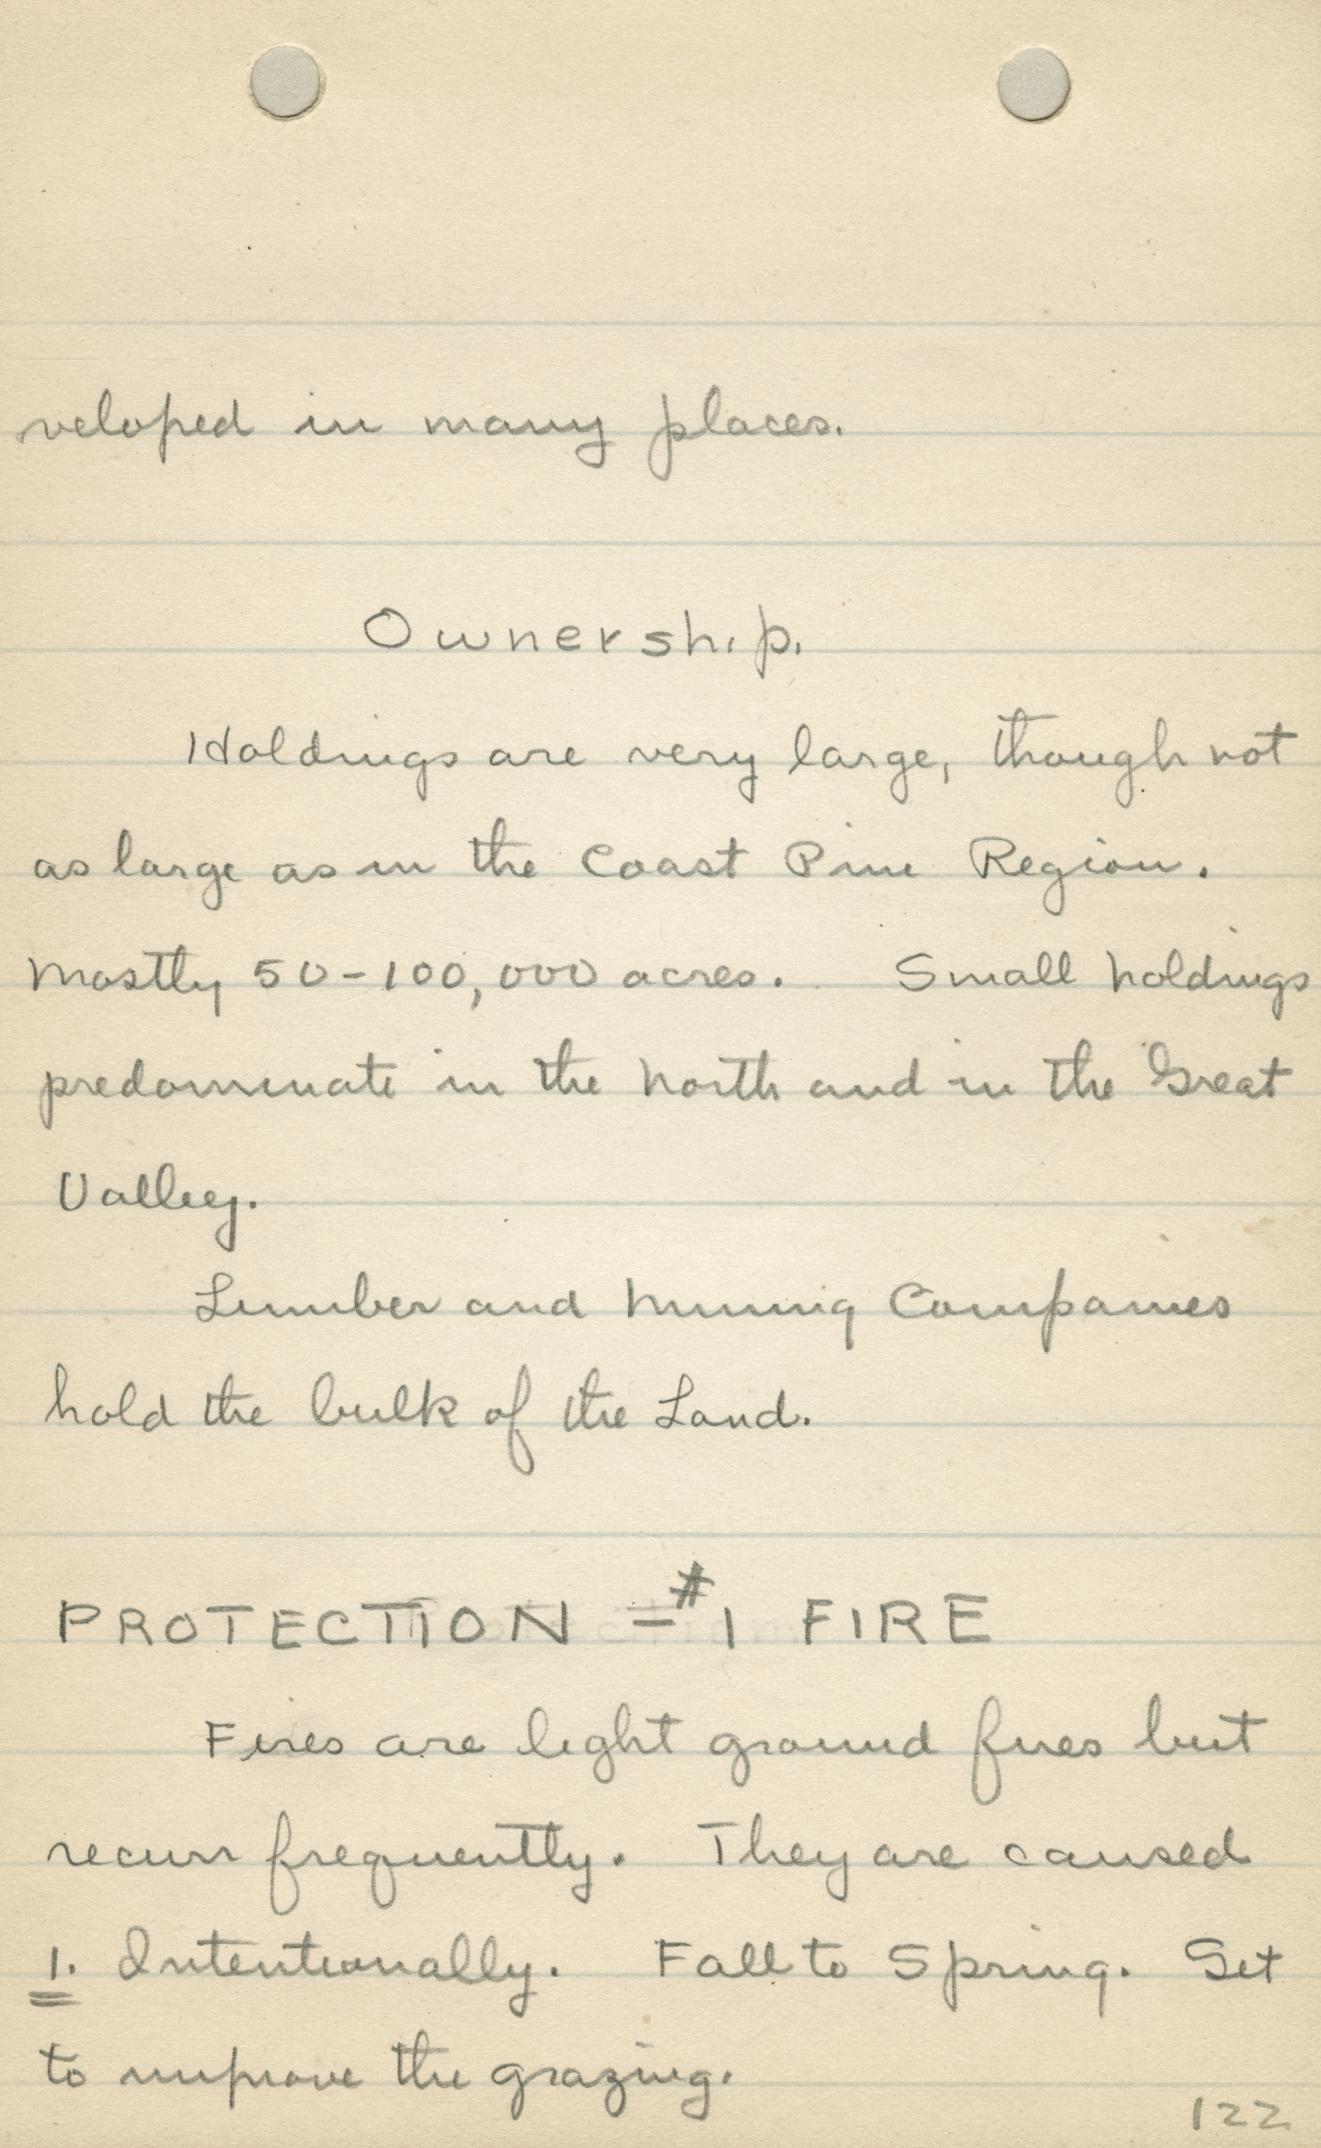 veloped in many places.
Ownership.
Holdings are very large, though not
as large as in the Coast Pine Region.
Mostly 50-100,000 acres. Small holdings
predominate in the North and in the Great
Valley.
Lumber and Mining Companies
hold the bulk of the Land.
PROTECTION - #1 FIRE
Fires are light ground fires but
recurr frequently. They are caused
1. Intentionally. Fall to Spring. Set
to improve the grazing.
122